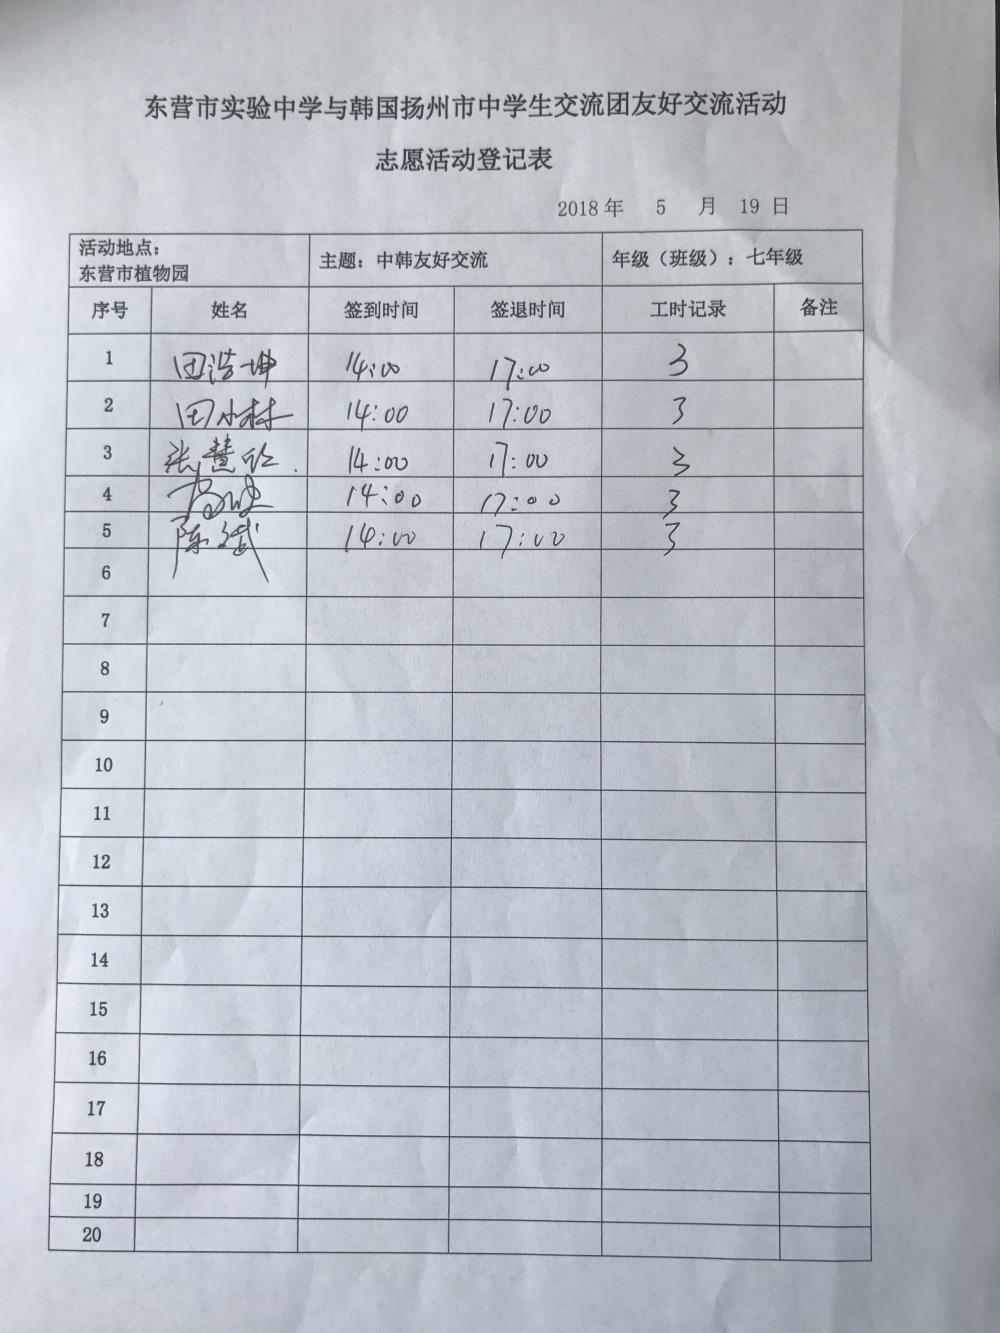 东营市实验中学与韩国扬州市中学生交流团友好交流活动
志愿活动登记表
2018 年 5 月 19 日
活动地点：
东营市植物园 主题：中韩友好交流 年级（班级）：七年级
序号 姓名 签到时间 签退时间 工时记录 备注
1 田浩坤 14:00 17:00 3
2 田小林 14:00 17:00 3
3 张慧 14:00 17:00 3
4 14:00 17:00 3
5 陈斌 14:00 17:00 3
6
7
8
9
10
11
12
13
14
15
16
17
18
19
20